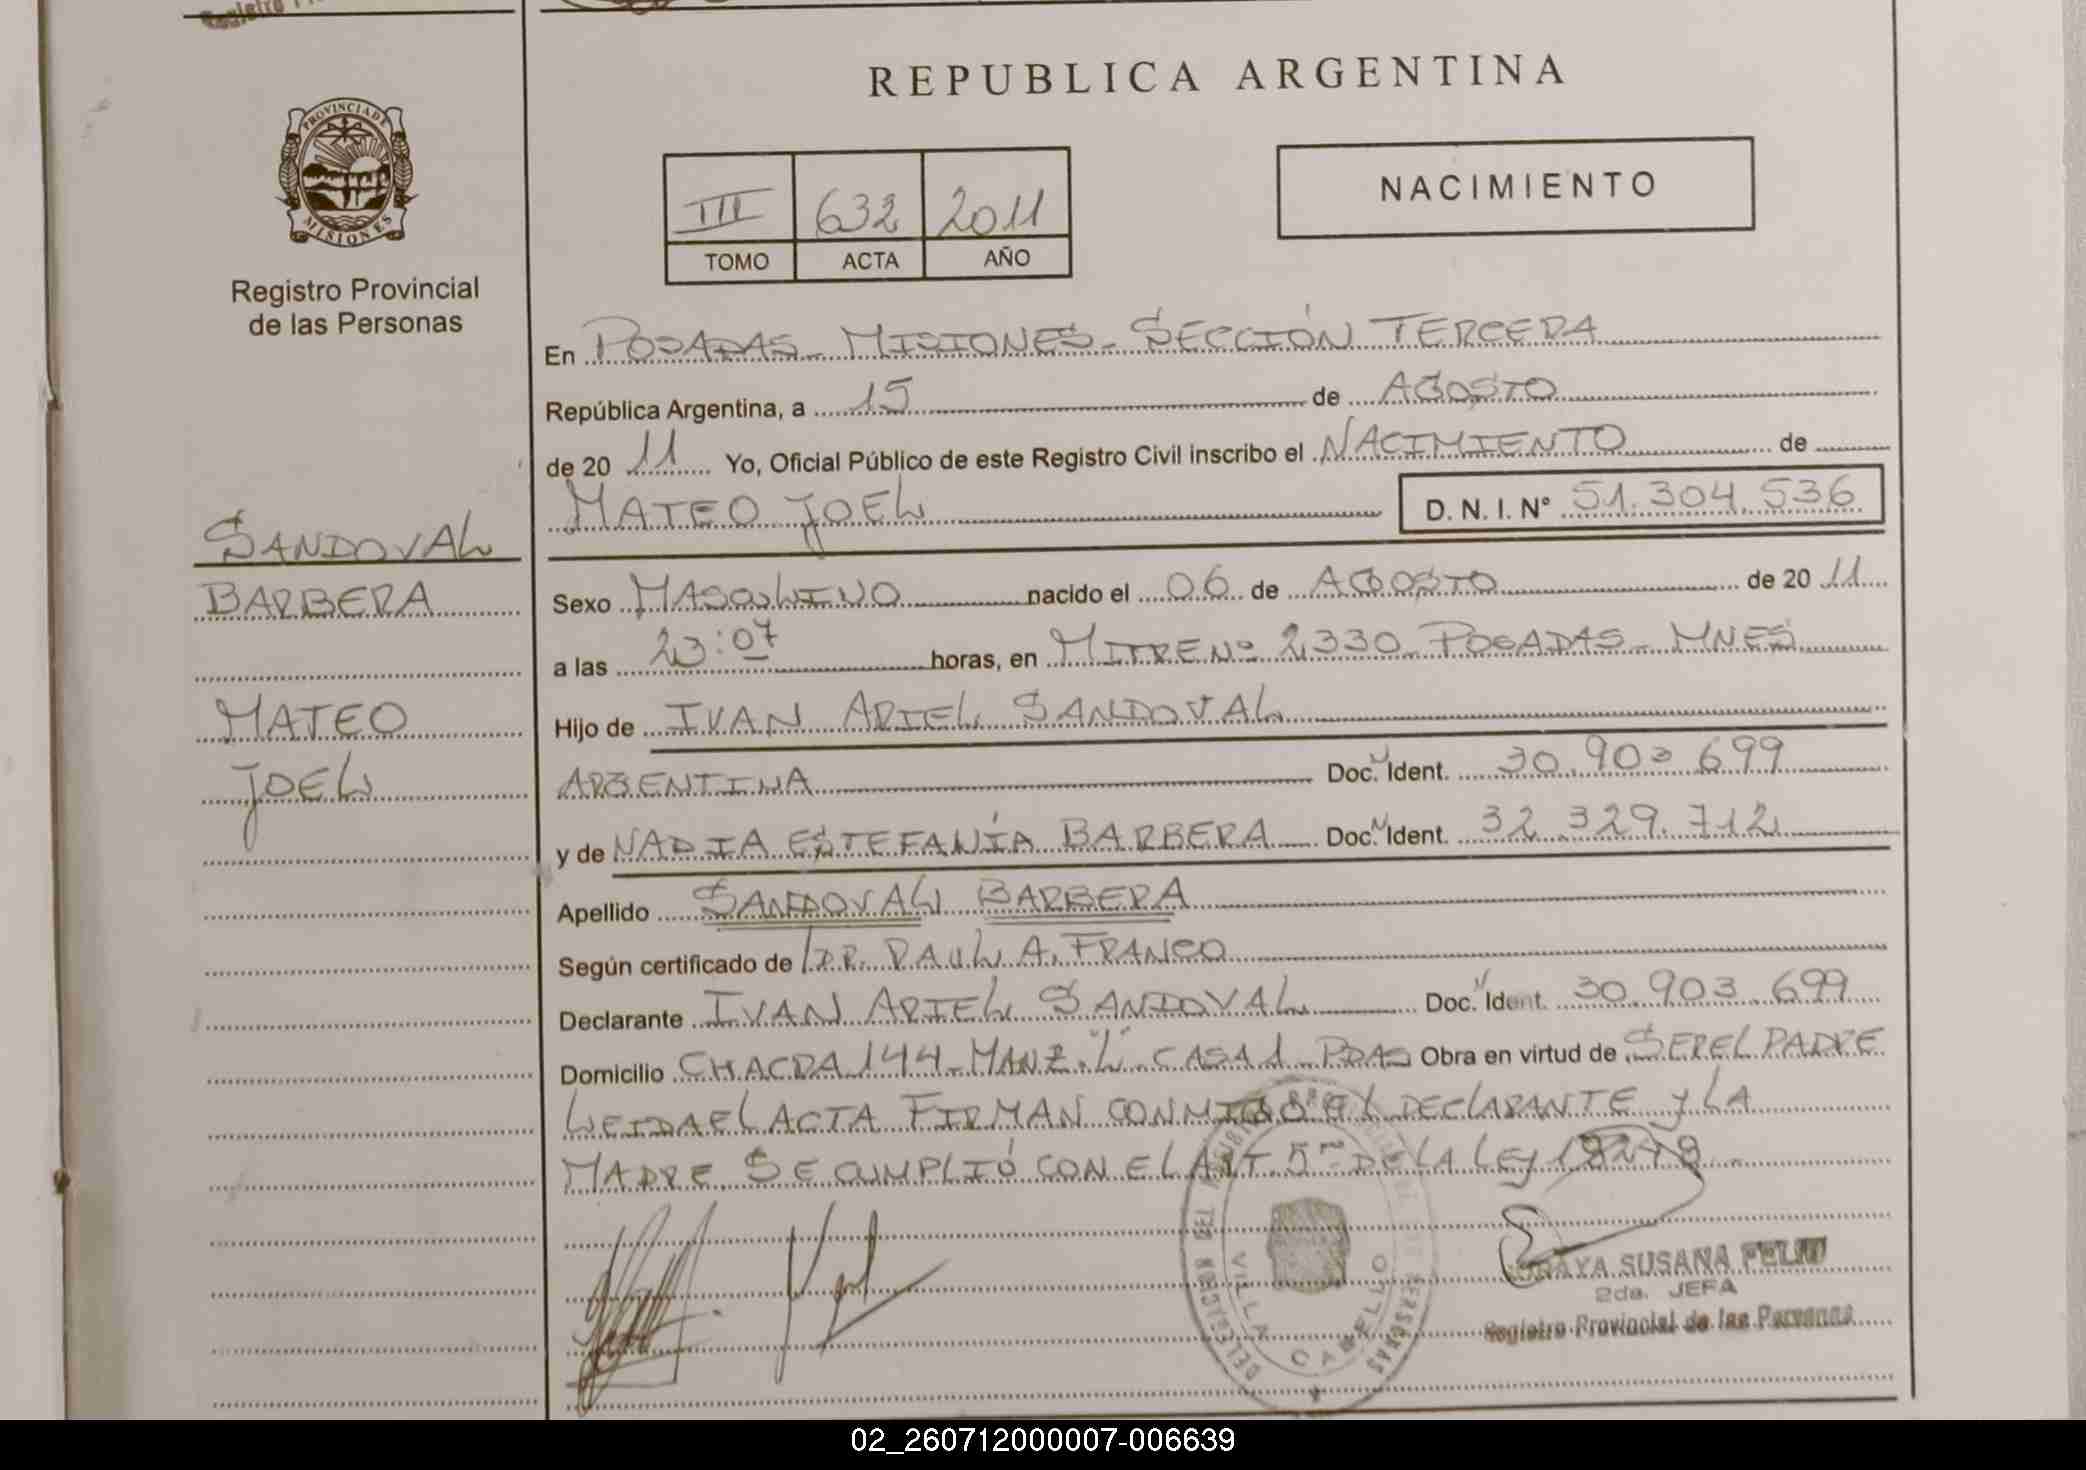 REPUBLICA ARGENTINA
PROVINCIA DE
MISIONES
Registro Provincial
de las Personas
NACIMIENTO
III 632 2011
TOMO ACTA AÑO
En POSADAS - MISIONES - SECCIÓN TERCERA
República Argentina, a 15 de AGOSTO
de 20 11 Yo, Oficial Público de este Registro Civil inscribo el NACIMIENTO de
MATEO JOEL D. N. I. N° 51.304.536
SANDOVAL
BARBERA
MATEO
JOEL
Sexo MASCULINO nacido el 06 de AGOSTO de 20 11
a las 23:07 horas, en MITRE Nº 2330 POSADAS - MNES
Hijo de IVAN ARIEL SANDOVAL
ARGENTINA Doc. Ident. 30.903.699
y de NADIA ESTEFANÍA BARBERA Doc. Ident. 32.329.712
Apellido SANDOVAL BARBERA
Según certificado de DR. RAUL A. FRANCO
Declarante IVAN ARIEL SANDOVAL Doc. Ident. 30.903.699
Domicilio CHACRA 144 - MANZ. "L" - CASA 1 - PDAS Obra en virtud de SER EL PADRE
LEIDA EL ACTA FIRMAN CONMIGO EL DECLARANTE Y LA
MADRE. SE CUMPLIÓ CON EL ART. 5to DE LA LEY
VILLA CABELLO
SORAYA SUSANA FELIU
2da. JEFA
Registro Provincial de las Personas
02_260712000007-006639